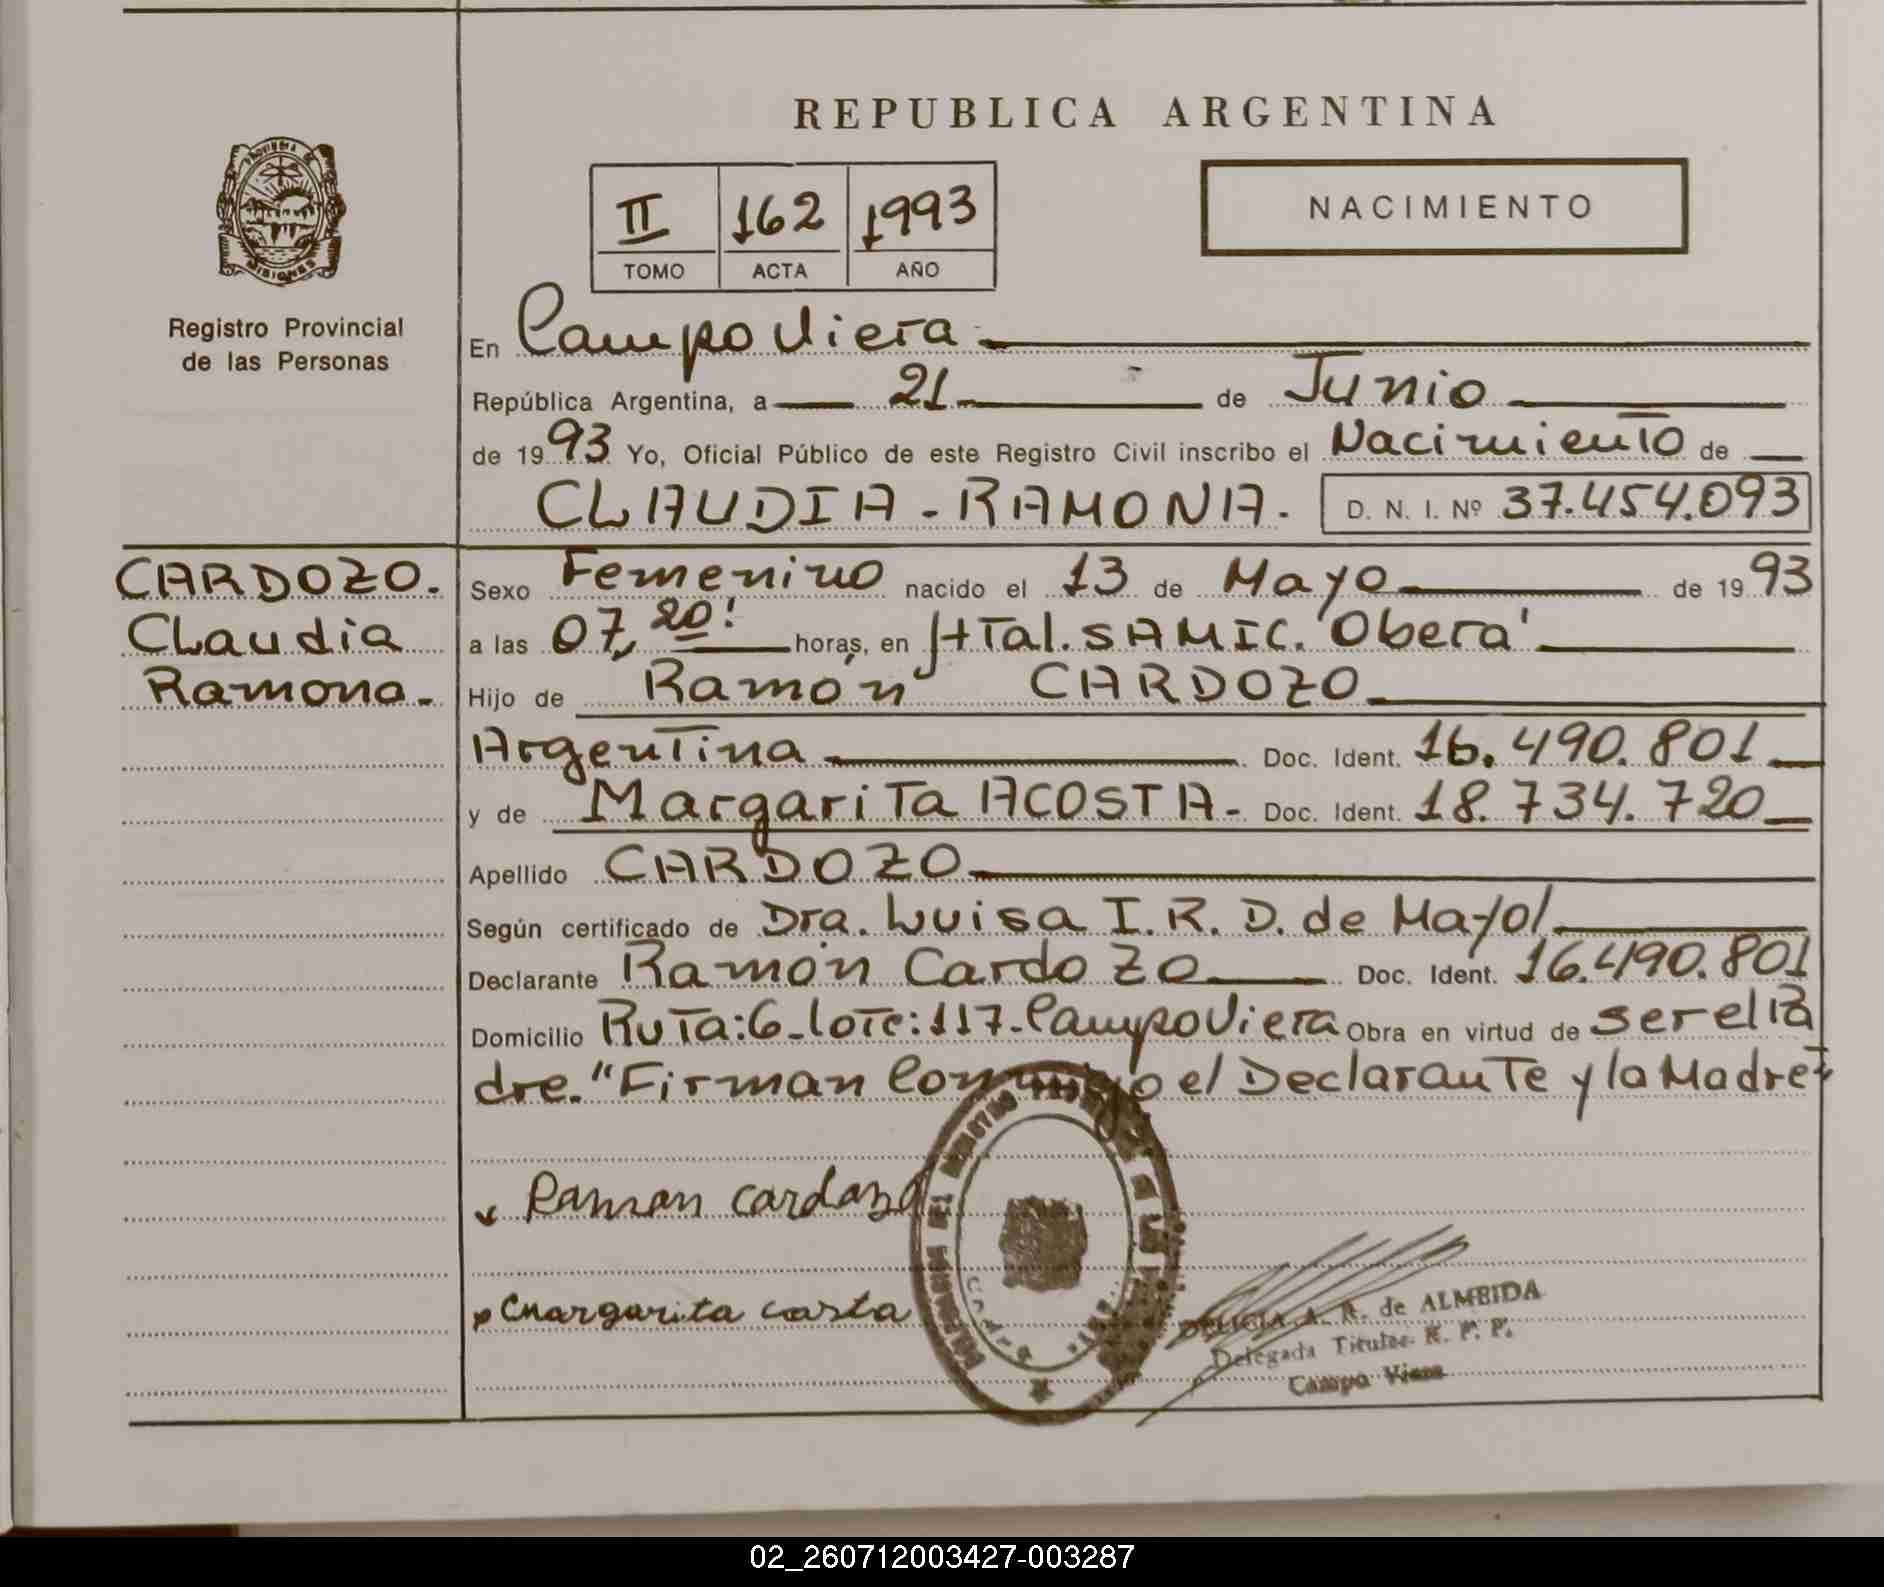 REPUBLICA ARGENTINA
PROVINCIA DE
MISIONES
Registro Provincial
de las Personas
II 162 1993
TOMO ACTA AÑO
NACIMIENTO
En Campo Viera
República Argentina, a 21 de Junio
de 1993 Yo, Oficial Público de este Registro Civil inscribo el Nacimiento de
CLAUDIA - RAMONA. D. N. I. Nº 37.454.093
CARDOZO.
Claudia
Ramona.
Sexo Femenino nacido el 13 de Mayo de 1993
a las 07,20' horas, en Htal. SAMIC. Oberá
Hijo de Ramón CARDOZO
Argentina Doc. Ident. 16.490.801
y de Margarita ACOSTA - Doc. Ident. 18.734.720
Apellido CARDOZO
Según certificado de Dra. Luisa I. R. D. de Mayol
Declarante Ramón Cardozo Doc. Ident. 16.490.801
Domicilio Ruta:6-lote:117-Campo Viera Obra en virtud de ser el Pa
dre. "Firman Conmigo el Declarante y la Madre
Raman cardozo
Margarita casta
A. R. de ALMEIDA
Delegada Titular R. P. P.
Campo Viera
02_260712003427-003287